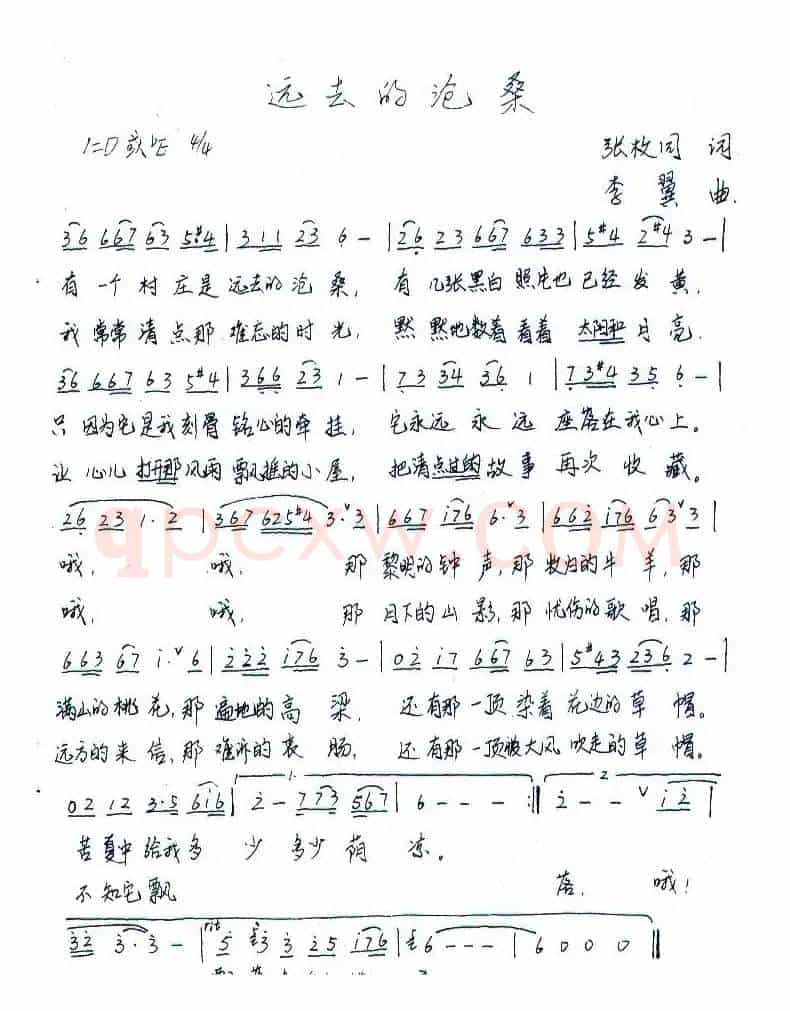 远去的沧桑
1=D 或♭E 4/4
张枚同 词
李翼 曲.
36 667 63 5#4 | 311 23 6 - | 26 23 667 633 | 5#4 2#4 3 - |
有一个村庄是远去的沧桑, 有几张黑白照片也已经发黄,
我常常清点那难忘的时光, 默默地数着看着太阳和月亮.
36 667 63 5#4 | 366 23 1 - | 73 34 36 1 | 73#4 35 6 - |
只因为它是我刻骨铭心的牵挂, 它永远永远座落在我心上。
让心儿打开那风雨飘摇的小屋, 把清点过的故事再次收藏。
26 23 1·2 | 367 625#4 3·3 | 667 i76 6·3 | 662 i76 63 3 |
哦, 哦, 那黎明的钟声, 那牧归的牛羊, 那
哦, 哦, 那月下的山影, 那忧伤的歌唱, 那
663 67 i·6 | 222 i76 3 - | 02 i7 667 63 | 5#43 236 2 - |
满山的桃花, 那遍地的高梁, 还有那一顶染着花边的草帽。
远方的来信, 那难许的衷肠, 还有那一顶被大风吹走的草帽。
02 12 3·5 6i6 | 1. 2 - 773 567 | 6 - - - :|| 2. 2 - - i2 |
苦夏中给我多少多少荫凉。
不知它飘 落, 哦!
32 3·3 - | rit 5 3 3 25 i76 | 6 - - - | 6 0 0 0 ||
qpcxw.COM